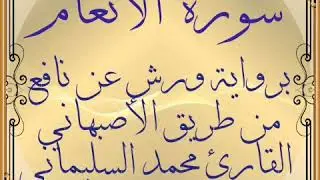 سورة الأنعام
برواية ورش عن نافع
من طريق الأصبهاني
القارئ محمد السليماني